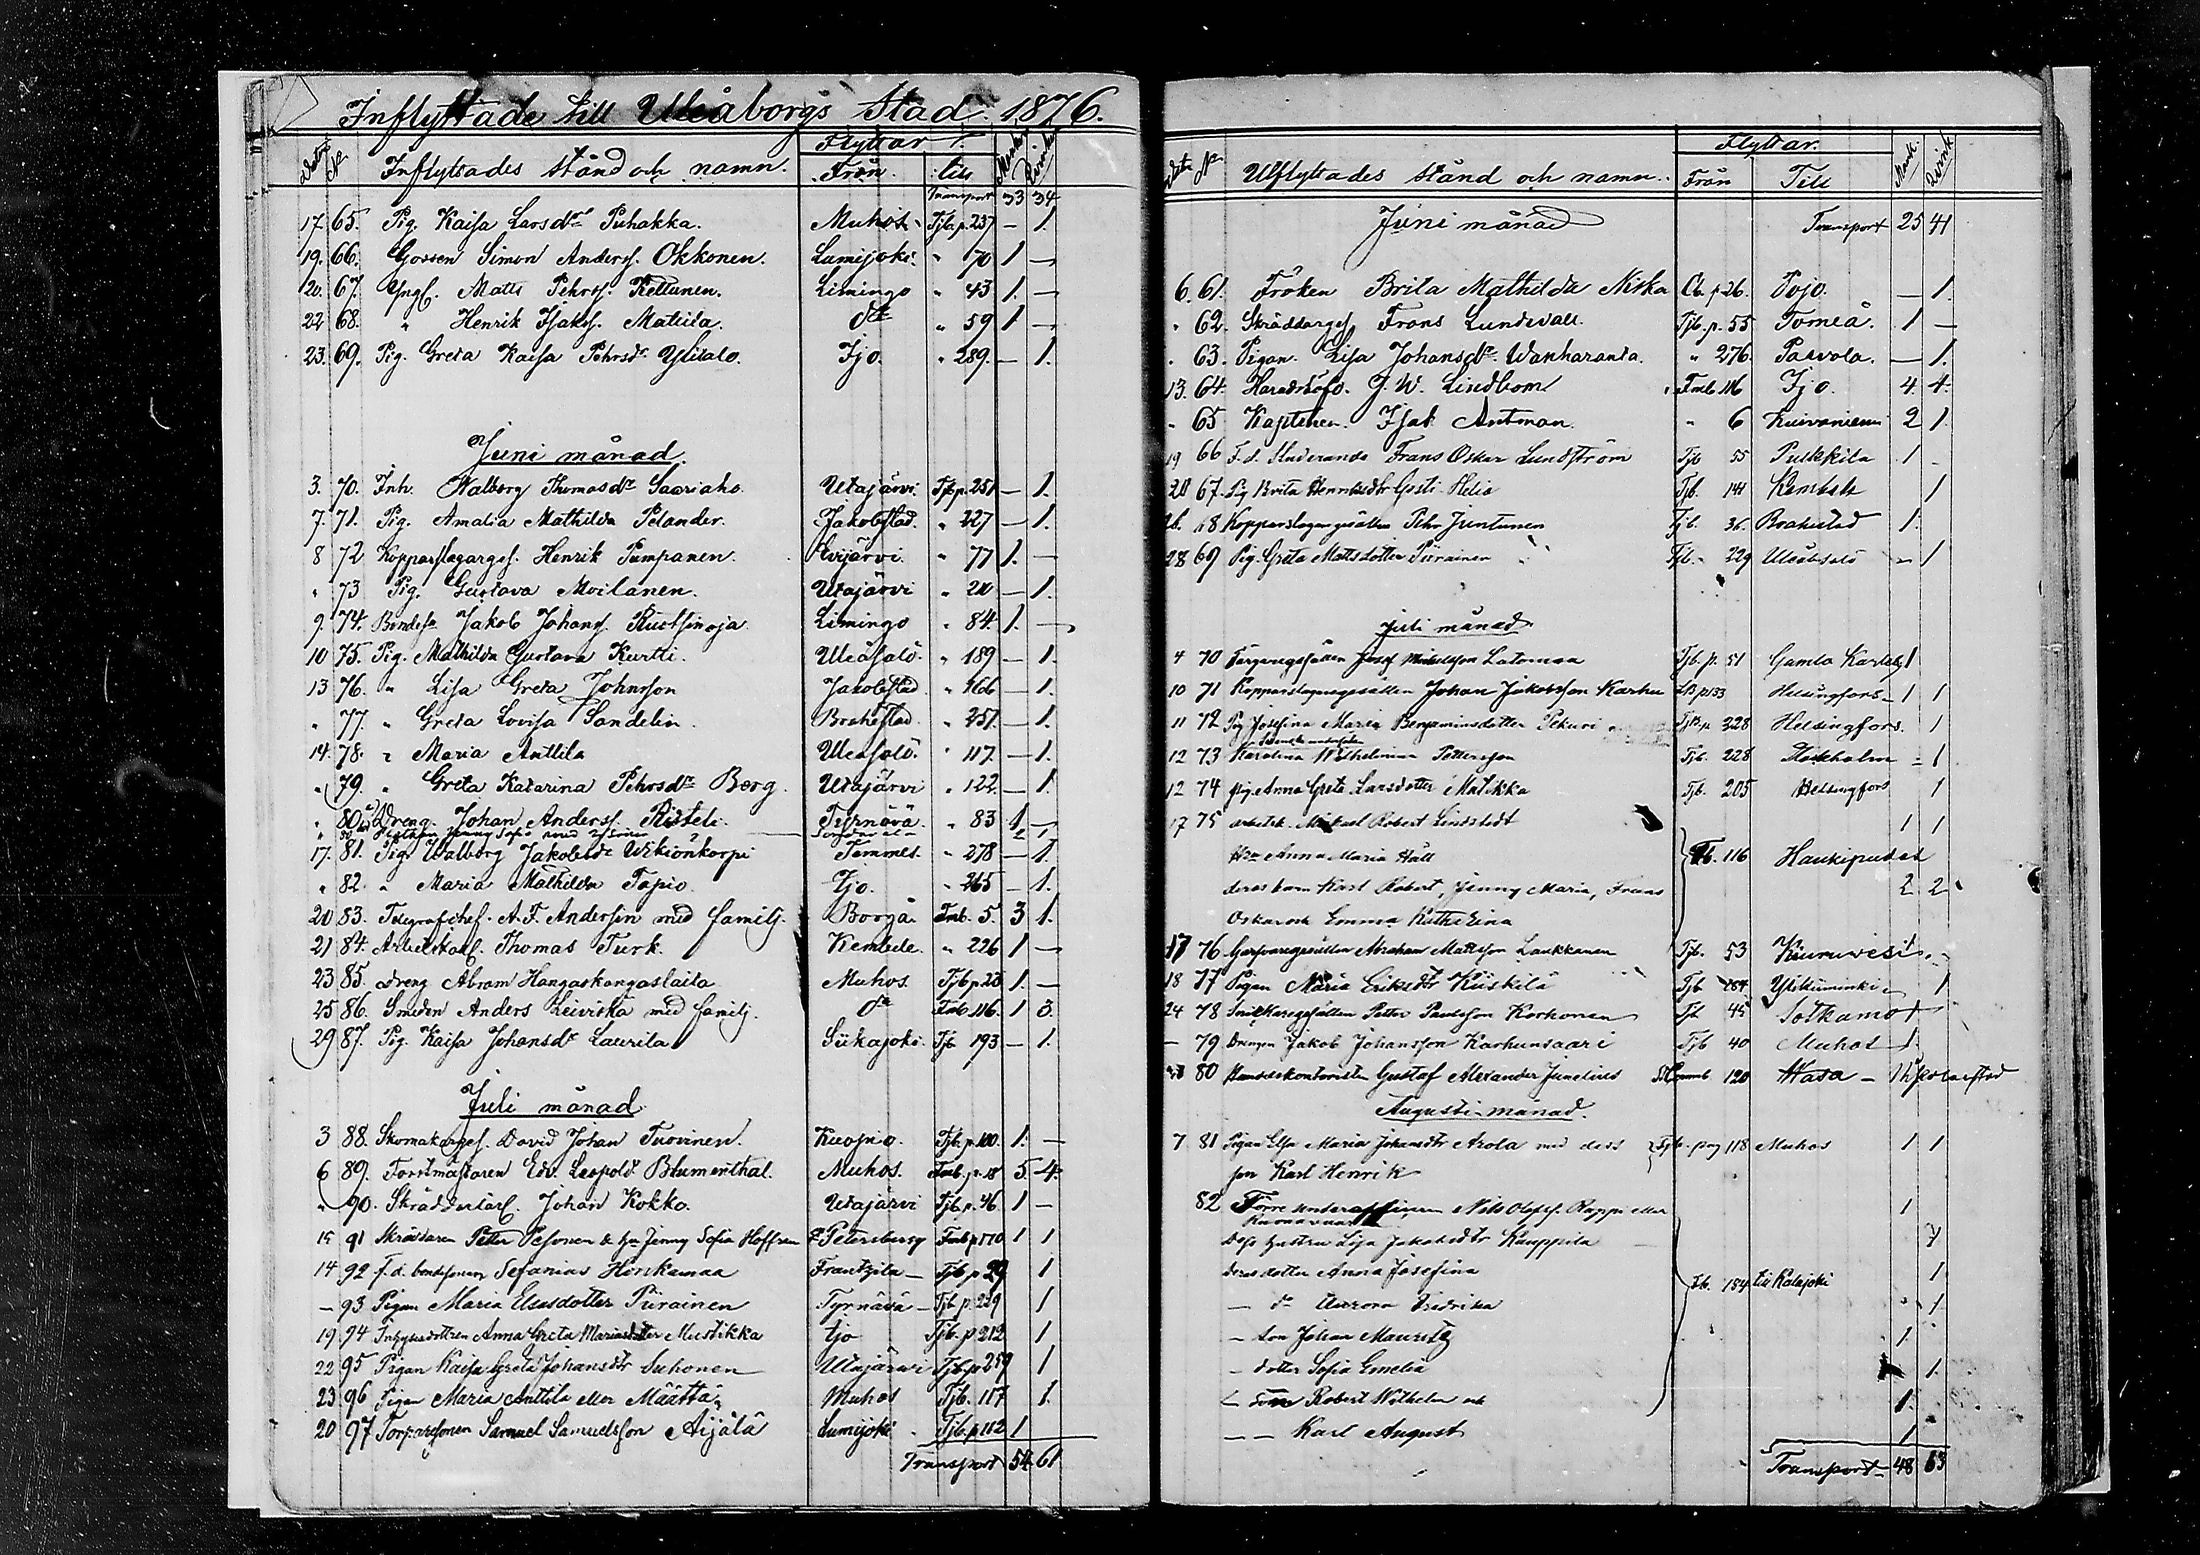 Inflyttade till Uleåborgs Stad. 1876.
Datum No Inflyttades stånd och namn. Flyttar Från till Mankön Qvinkön
Transport 33 34
17. 65. Pig. Kaisa Larsdr Puhakka. Muhos Tjb. p. 237 – 1.
19. 66. Gossen Simon Anderss. Okkonen. Lumijoki. " 70 1 –
20. 67. Yngl. Matts Pehrss. Kettunen. Limingo " 43 1. –
22 68. " Henrik Isakss. Matiila. do " 59 1 –
23. 69. Pig. Greta Kaisa Pehrsdr Ylitalo. Ijo. " 289. – 1.
Juni månad.
3. 70. Inh. Walborg Thomasdr Saariaho. Utajärvi. Tjb. p. 251 – 1.
7. 71. Pig. Amalia Mathilda Pelander. Jakobstad. " 227 – 1.
8 72 Kopparslagarges. Henrik Pumpanen. Evijärvi. " 77 1. –
" 73 Pig. Gustava Moilanen. Utajärvi " 210 – 1.
9. 74. Bondes. Jakob Johanss. Ruotsinoja. Limingo " 84. 1. –
10 75. Pig. Mathilda Gustava Kurtti. Uleåsalo. " 189 – 1.
13 76. " Lisa Greta Johnsson Jakobstad " 166 – 1.
" 77. " Greta Lovisa Sandelin. Brahestad " 257. – 1.
14. 78. " Maria Anttila Uleåsalo. " 117. – 1.
" 79. " Greta Katarina Pehrsdr Berg. Utajärvi " 122. – 1.
" 80. Dreng. Johan Anderss. Risteli. Tyrnävä. " 83 1 –
17. 81. Pig. Walborg Jakobsdr Temmes. " 278 – 1.
" 82. " Maria Mathilda Tapio. Ijo. " 265 – 1.
20 83. Telegrafchef. A. F. Andersin med familj. Borgå. Fmb. 5. 3 1.
21 84. Arbetskarl. Thomas Turk. Kembele. " 226 1 –
23 85. Dreng Abram Hangaskangaslaita Muhos. Tjb p. 23 1. –
25 86. Smeden Anders Leiviskä med familj. do Fmb 116. 1 3.
29 87. Pig. Kaisa Johansdr Laurila Siikajoki. Tjb 193 – 1.
Juli månad
3 88. Skomakarges. David Johan Tuovinen. Kuopio. Tjb. p. 100. 1. –
6 89. Forstmästaren Edv. Leopold Blumenthal. Muhos. Fmb. p. 18 5. 4.
" 90. Skräddarlärl. Johan Kokko. Utajärvi Tjb. p. 46 1 –
15 91 Skräddaren Petter Pesonen & hu Jenny Sofia Hoffren Petersburg Fmb p 170 1 1
14 92 f. d. bondsonen Sefanias Honkamaa Frantzila – Tjb. p 29 1
– 93 Pigan Maria Piirainen Tyrnävä – Tjb. p. 229 1
19 94 Anna Greta Mustikka Ijo Tjb. p 212 1
22 95 Pigan Kaisa Greta Johansdr Suhonen Utajärwi Tjb. p 259 1
23 96 Pigan Maria Anttila eller Määtta Muhos Tjb. 117 1.
20 97 Torparsonen Samuel Samuelsson Aijälä Lumijoki Tjb. p 112 1
Transport 54 61
Datum No Utflyttades stånd och namn. Flyttar. Från Till Mank. Qvink
Juni månad Transport 25 41
6. 61. Fröken Brita Mathilda Niska Cb. p 26. Pojo. – 1.
" 62. Skräddarges. Frans Lundvall. Tjb. p. 55 Torneå. 1 –
" 63. Pigan. Lisa Johansdr Wanharanta. " 276. Paavola. – 1.
13. 64. Häradshöfd. J. W. Lindbom Fmb 116 Ijo. 4. 4.
" 65 Kaptenen. Isak Antman. " 6 Kuivaniemi 2 1.
19 66 F. d. Studerande Frans Oskar Lundström Tjb 55 Pulkkila 1 –
20 67. Pig Brita Henriksdtr Heliö Tjb. 141 Kembele 1
26. 68 Kopparslagaregesällen Pehr Juntunen Tjb. 36. Brahestad 1.
28 69 Pig. Greta Mattsdotter Piirainen Tjb. 229 Uleåsalo – 1
Juli månad
4 70 Färgaregesällen Josef Michelsson Latomaa Tjb. p. 51 Gamla Karleby 1
10 71 Kopparslagaregesällen Johan Jakobsson Karhu p 33 Helsingfors – 1 1
11 72 Pig Josefina Maria Benjaminsdotter Pekuri Tjb. p. 228 Helsingfors. 1
12 73 Karolina Wilhelmina Pettersson Tjb. 228 Stockholm – 1
12 74 pig. Anna Greta Larsdotter Matikka Tjb. 205 Helsingfors 1
17 75 arbetsk. Mickael Robert Lindstedt 1 1
Hu Anna Maria Häll Fb. 116 Haukipudas
deras barn Karl Robert, Jenny Maria, Frans 2 2
Oskar och Emma Katharina
17 76 Garfvaregesällen Abraham Mattsson Laukkanen Tjb. 53 Kiuruvesi 1. –
18 77 Pigan Maria Eriksdtr Kiiskilä Tjb 284 Ylikiiminki 1
24 78 Petter Paulsson Korhonen Tjb 45 Sotkamo 1
– 79 Drengen Jakob Johansson Karhunsaari Tjb 40 Muhos 1.
80 Handelskontoristen Gustaf Alexander Junelius 120 Wasa – 1
Augusti månad.
7 81 Pigan Elsa Maria Johansdtr Arola med dess Tjb. pag 118 Muhos 1 1
son Karl Henrik
82 Förre underofficeren Nils Olofss. Rappe eller 1
Dess hustru Lisa Jakobsdtr Kauppila 1
Deras dotter Anna Josefina Fb. 184 till Kalajoki 1
– do Aurora Fredrika 1
– son Johan Mauritz 1
– dotter Sofia Emelia 1.
– sone Robert Wilhelm och 1.
– – Karl August 1
Transport – 48 63